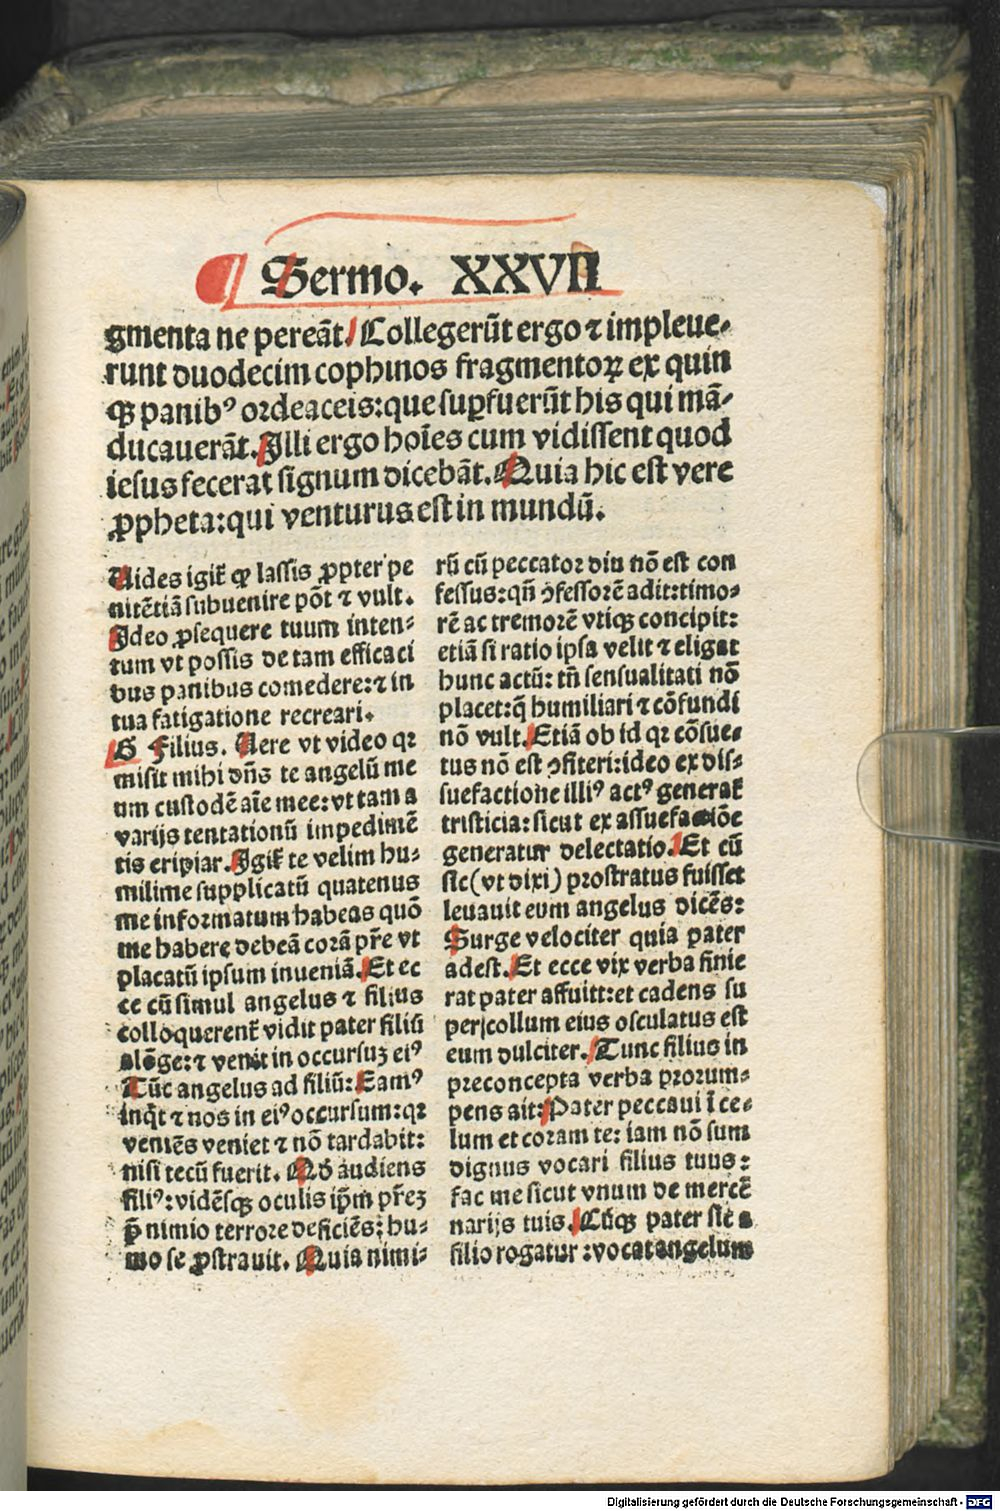 Sermo. XXVII
gmenta ne pereāt. Collegerūt ergo ⁊ impleue-
runt duodecim cophinos fragmentoꝝ ex quin
qꝫ panibꝰ ordeaceis: que suꝑfuerūt his qui mā-
ducauerāt. Illi ergo hoīes cum vidissent quod
iesus fecerat signum dicebāt. Quia hic est vere
ꝓpheta: qui venturus est in mundū.
Uides igit̄ ꝙ lassis ꝓpter pe
nitētiā subuenire pōt ⁊ vult.
Ideo ꝓsequere tuum inten-
tum vt possis de tam efficaci
bus panibus comedere: ⁊ in
tua fatigatione recreari.
G Filius. Uere vt video qꝛ
misit mihi dn̄s te angelū me
um custodē aīe mee: vt tam a
varijs tentationū impedimē
tis eripiar. Igit̄ te velim hu-
milime supplicatū quatenus
me informatum habeas quō
me habere debeā corā pr̄e vt
placatū ipsum inueniā. Et ec
ce cū simul angelus ⁊ filius
colloquerent̄ vidit pater filiū
alōge: ⁊ venit in occursuꝫ eiꝰ
Tūc angelus ad filiū: Eamꝰ
inq̄t ⁊ nos in eiꝰ occursum: qꝛ
veniēs veniet ⁊ nō tardabit:
nisi tecū fuerit. Qō audiens
filiꝰ: vidēsqꝫ oculis ip̄m pr̄eꝫ
p̄ nimio terrore deficiēs: hu-
mo se ꝓstrauit. Quia nimi-
rū cū peccator diu nō est con
fessus: qn̄ ꝯfessorē adit: timo-
rē ac tremorē vtiqꝫ concipit:
etiā si ratio ipsa velit ⁊ eligat
hunc actū: tn̄ sensualitati nō
placet: q̄ humiliari ⁊ cōfundi
nō vult. Etiā ob id qꝛ cōsue-
tus nō est ꝯfiteri: ideo ex dis-
suefactione illiꝰ actꝰ generat̄
tristicia: sicut ex assuefactiōe
generatur delectatio. Et cū
sic (vt dixi) prostratus fuisset
leuauit eum angelus dicēs:
Surge velociter quia pater
adest. Et ecce vix verba finie
rat pater affuitt: et cadens su
per collum eius osculatus est
eum dulciter. Tunc filius in
preconcepta verba prorum-
pens ait: Pater peccaui ī ce-
lum et coram te: iam nō sum
dignus vocari filius tuus:
fac me sicut vnum de mercē
narijs tuis. Cūqꝫ pater sic a
filio rogatur: vocat angelum
Digitalisierung gefördert durch die Deutsche Forschungsgemeinschaft - DFG